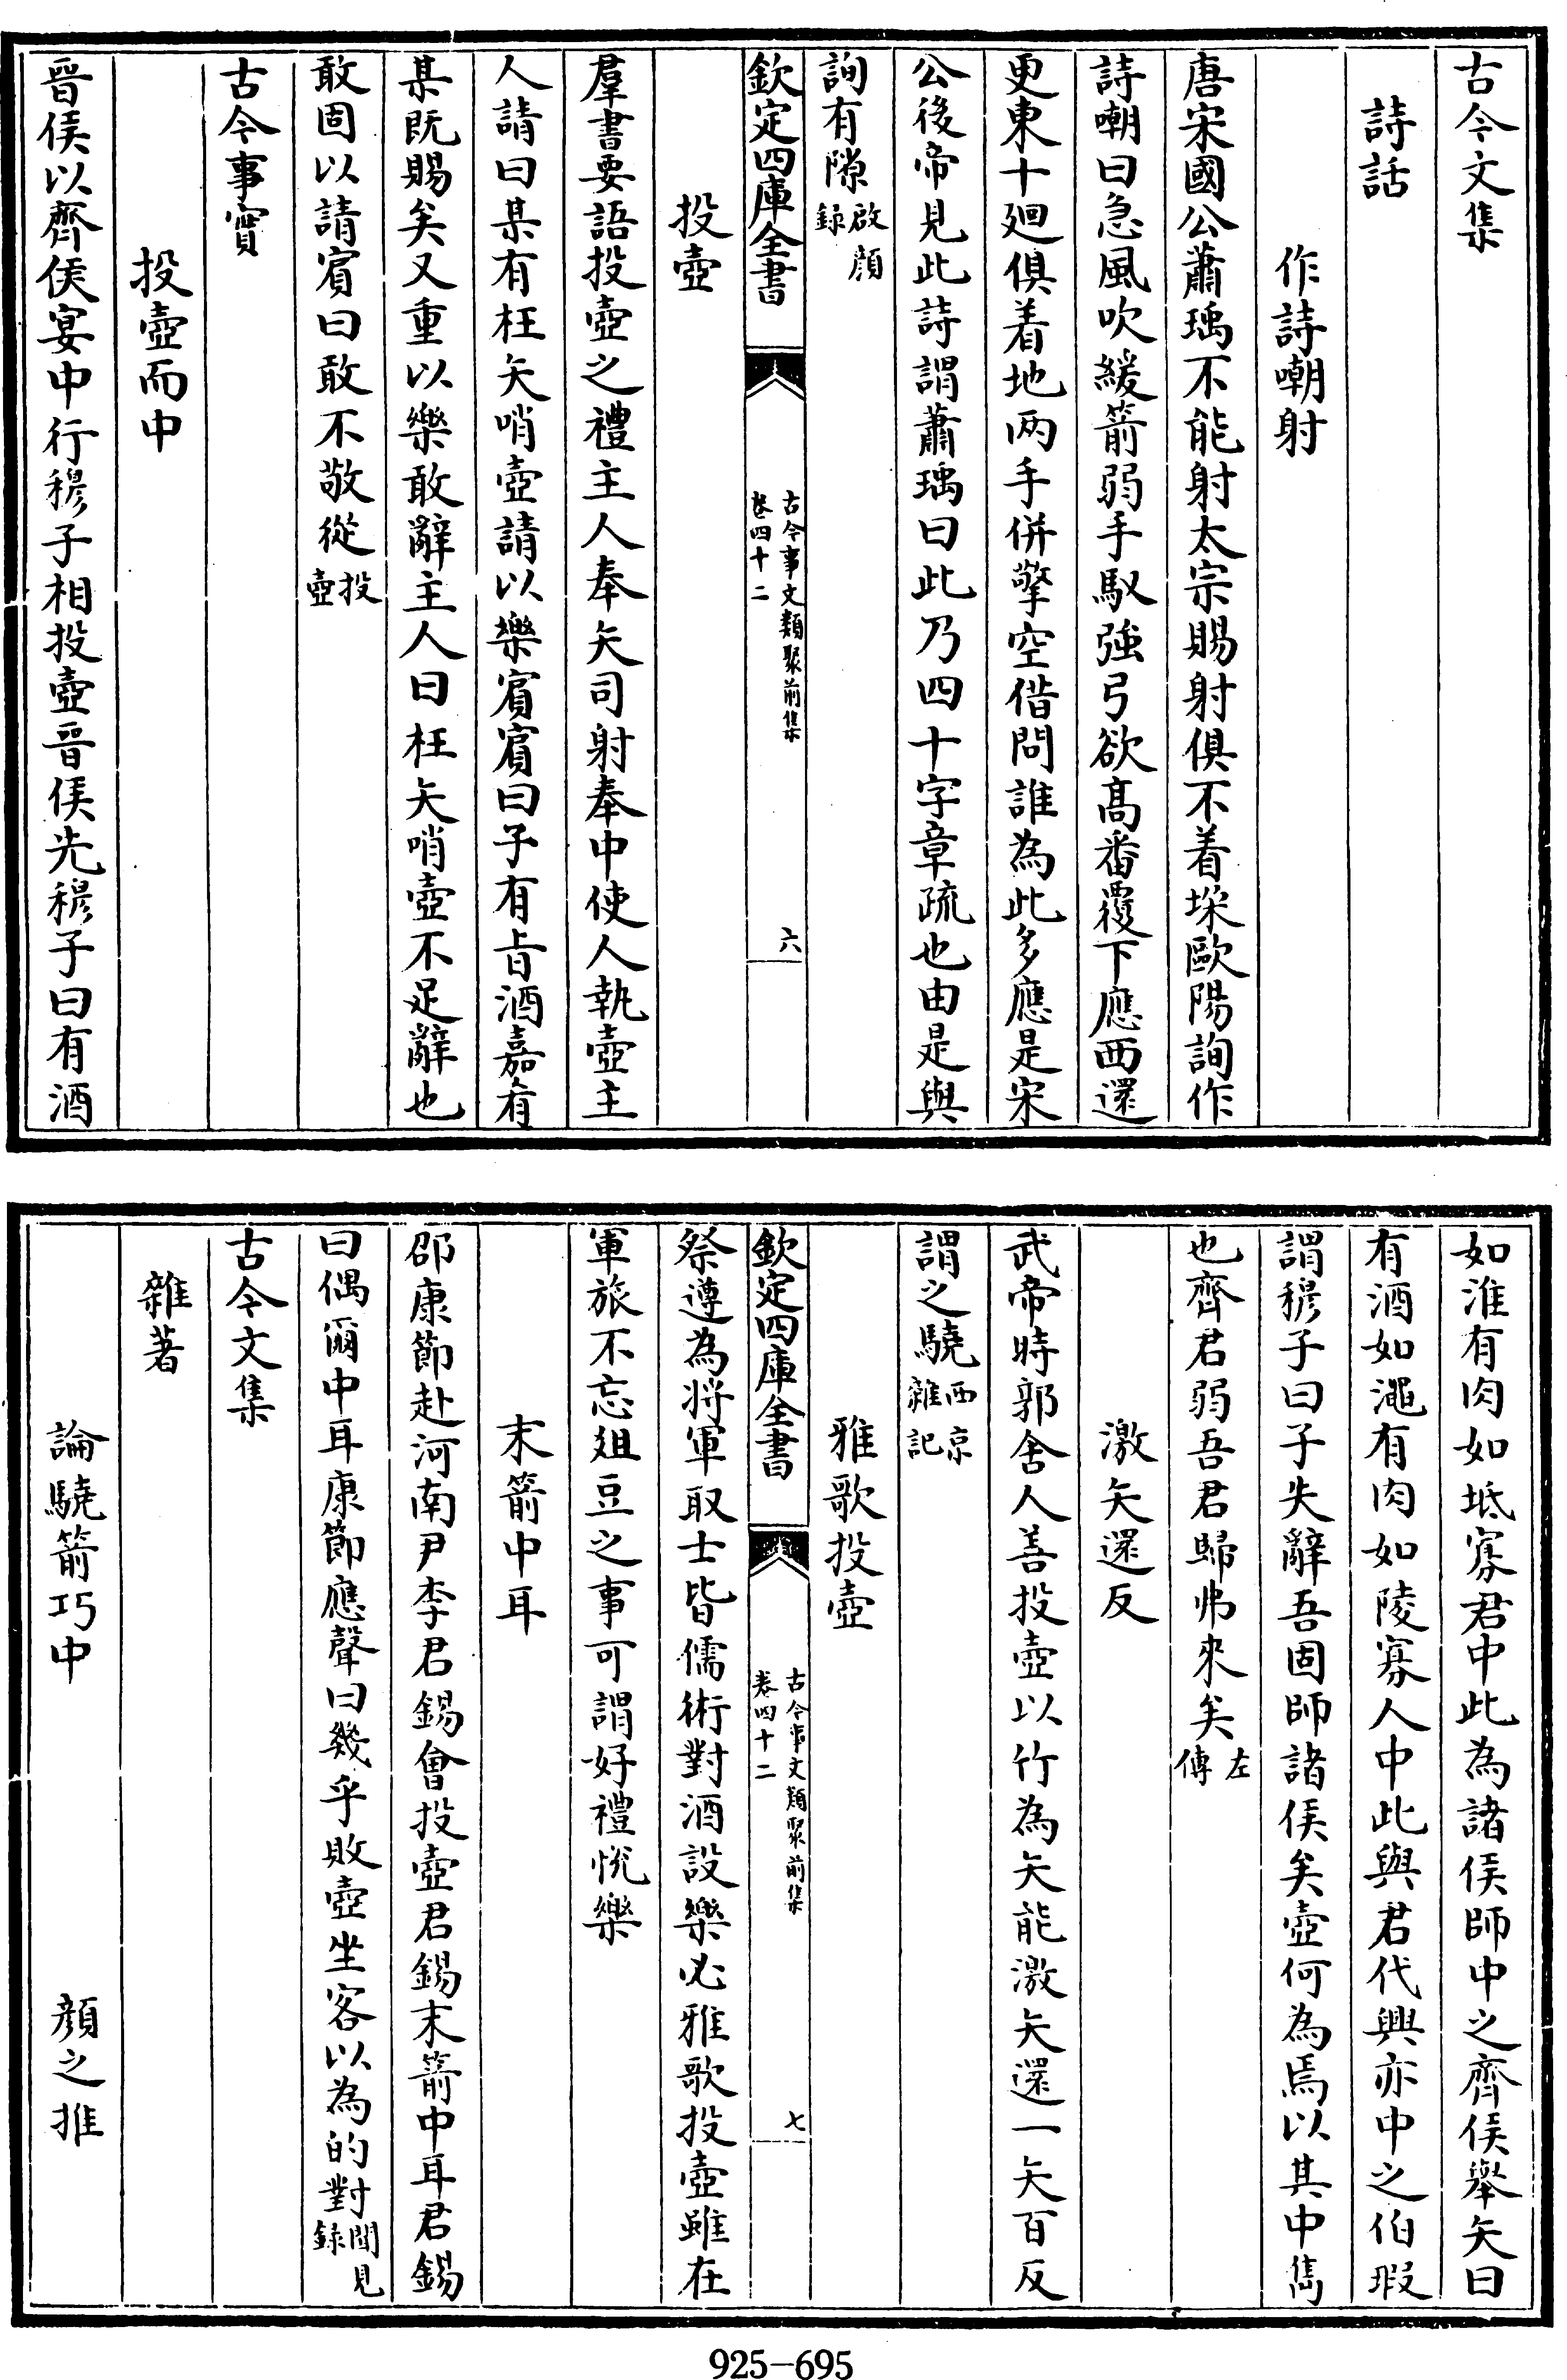 古今文集
詩話
作詩嘲射
唐宋國公蕭瑀不能射太宗賜射俱不着垜歐陽詢作
詩嘲曰急風吹緩箭弱手馭強弓欲髙番覆下應西還
更東十廻俱着地兩手併擎空借問誰為此多應是宋
公後帝見此詩謂蕭瑀曰此乃四十字章疏也由是與
詢有隙啟顔録
欽定四庫全書 古今事文類聚前集 卷四十二 六
投壺
羣書要語投壺之禮主人奉矢司射奉中使人執壺主
人請曰某有枉矢哨壺請以樂賓賓曰子有㫖酒嘉肴
某既賜矣又重以樂敢辭主人曰枉矢哨壺不足辭也
敢固以請賓曰敢不敬從投壺
古今事實
投壺而中
晉侯以齊侯宴中行穆子相投壺晉侯先穆子曰有酒
如淮有肉如坻寡君中此為諸侯師中之齊侯舉矢曰
有酒如澠有肉如陵寡人中此與君代興亦中之伯瑕
謂穆子曰子失辭吾固師諸侯矣壺何為焉以其中雋
也齊君弱吾君歸弗來矣左傳
激矢還反
武帝時郭舍人善投壺以竹為矢能激矢還一矢百反
謂之驍西京雜記
雅歌投壺
欽定四庫全書 古今事文類聚前集 卷四十二 七
祭遵為將軍取士皆儒術對酒設樂必雅歌投壺雖在
軍旅不忘俎豆之事可謂好禮悅樂
末箭中耳
邵康節赴河南尹李君錫會投壺君錫末箭中耳君錫
曰偶爾中耳康節應聲曰幾乎敗壺坐客以為的對聞見録
古今文集
雜著
論驍箭巧中 顔之推
925-695